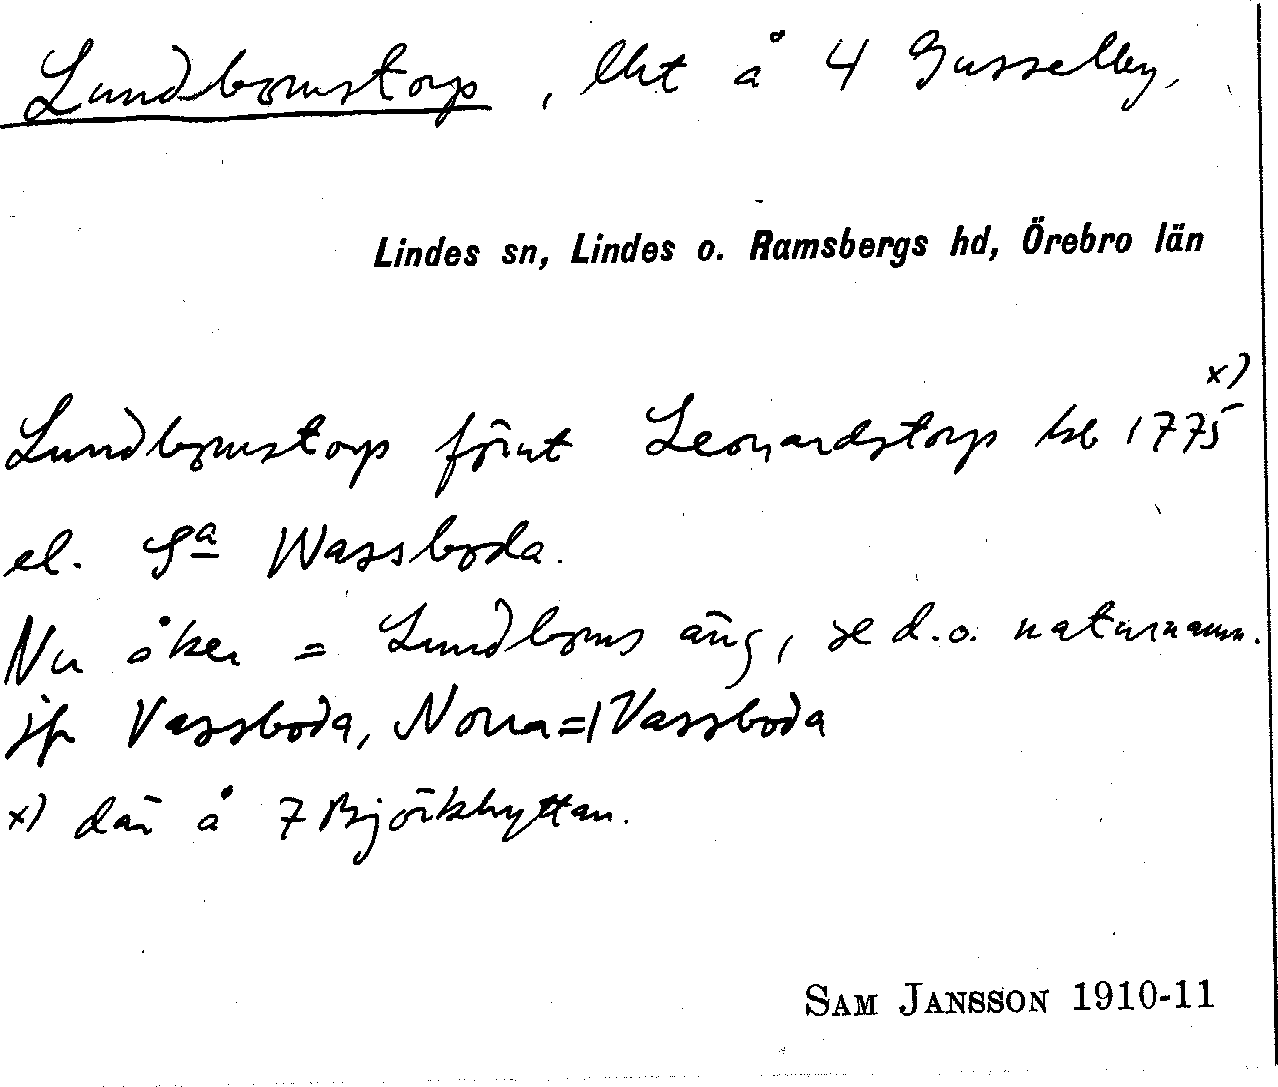 Lundbomstorp, lht å 4 Gusselby,
Lindes sn, Lindes o. Ramsbergs hd, Örebro län
x)
Lundbomstorp förut Leonardstorp hb 1775
el. Sa Wassboda.
Nu åker = Lundboms äng, se d.o. naturnamn.
jfr Vassboda, Norra = Vassboda
x) där å 7 Björkhyttan.
SAM JANSSON 1910-11